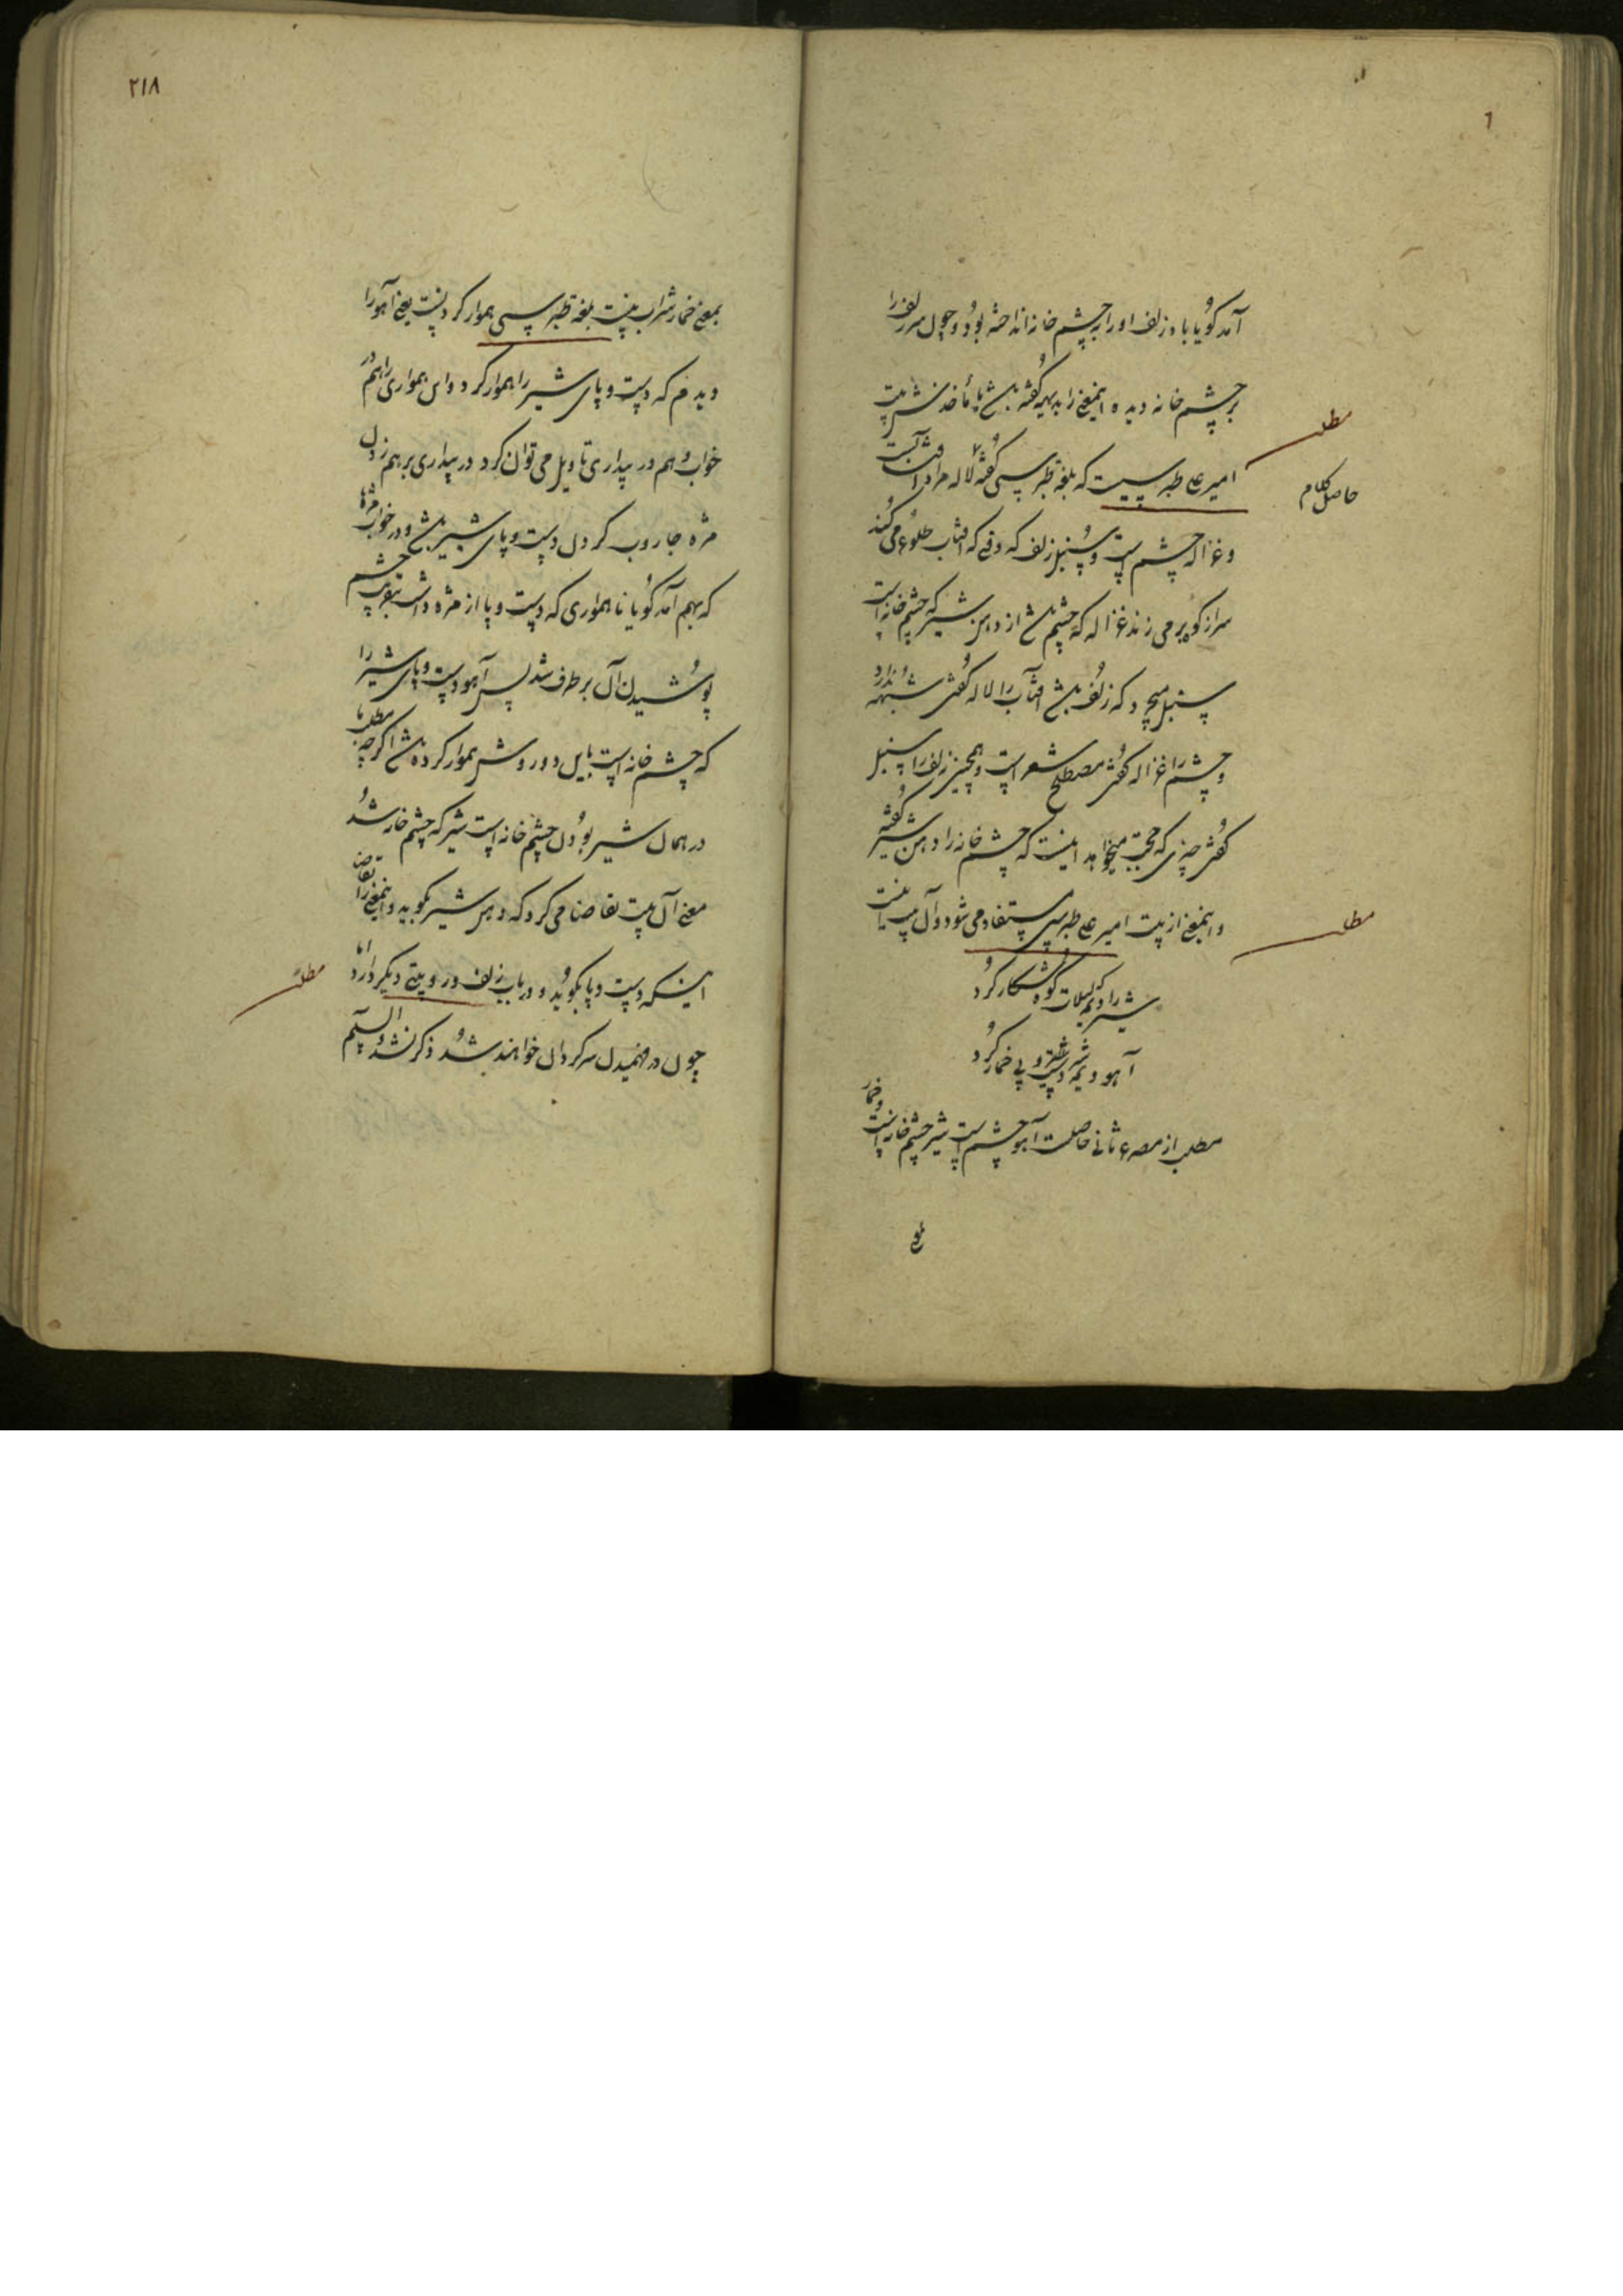 آمد گویا باد زلف او را بر چشم خانه انداخته بود و چون سر زلف را
بر چشم خانه دیده اینمعنی را بدیهه گفته باشد یا مأخذش بیت
مطلب
امیر علی طبرسیست که بلغة طبرسی گفته لاله مراد آفتابست
حاصل کلام
و غزاله چشم است و سنبل زلف که وقتی که آفتاب طلوع می کند
سر از کوه بر می زند غزاله که چشم باشد از دهن شیر که چشم خانه است
سنبل میچرد که زلف باشد آفتاب را لاله گفتن شبهه ندارد
و چشم را غزاله گفتن مصطلح شعر است و همچنین زلف را سنبل
گفتن چیزی که حجت میخواهد اینست که چشم خانه را دهن شیر گفتن
و اینمعنی از بیت امیر علی طبرسی مستفاد می شود و آن بیت اینست
مطلب
شیر را دیمه کوه شکار کرد
آهو دیمه شیر دست و پی خمار کرد
مطلب از مصرع ثانی حاصلست آهو چشم است شیر چشم خانه است و خمار
۲۱۸
بمعنی خمار شراب نیست بلغة طبرسی هموار کردنست یعنی آهو را
دیدم که دست و پای شیر را هموار کرد و این هموار ی را هم در
خواب و هم در بیداری تاویل می توان کرد در بیداری بر هم زدن
مژه جاروب کردن دست و پای شیر باشد و در خواب مژها
که بهم آمد گویا ناهمواری که دست و پا از مژه داشت بتقریب چشم
پوشیدن آن بر طرف شد پس آهو دست و پای شیر را
که چشم خانه است باین دو روش هموار کرده باشد اگرچه مطلب ما
در همان شیر بودن چشم خانه است شیر که چشم خانه شد
معنی آن بیت تقاضا می کرد که دهن شیر بگوید و اینمعنی تقاضا
اینکه دست و پا بگوید و در باب زلف در و بیتی دیگر دارد اما
مطلب
چون در فهمیدن سرگردان خواهند شد ذکر نشد والسلم